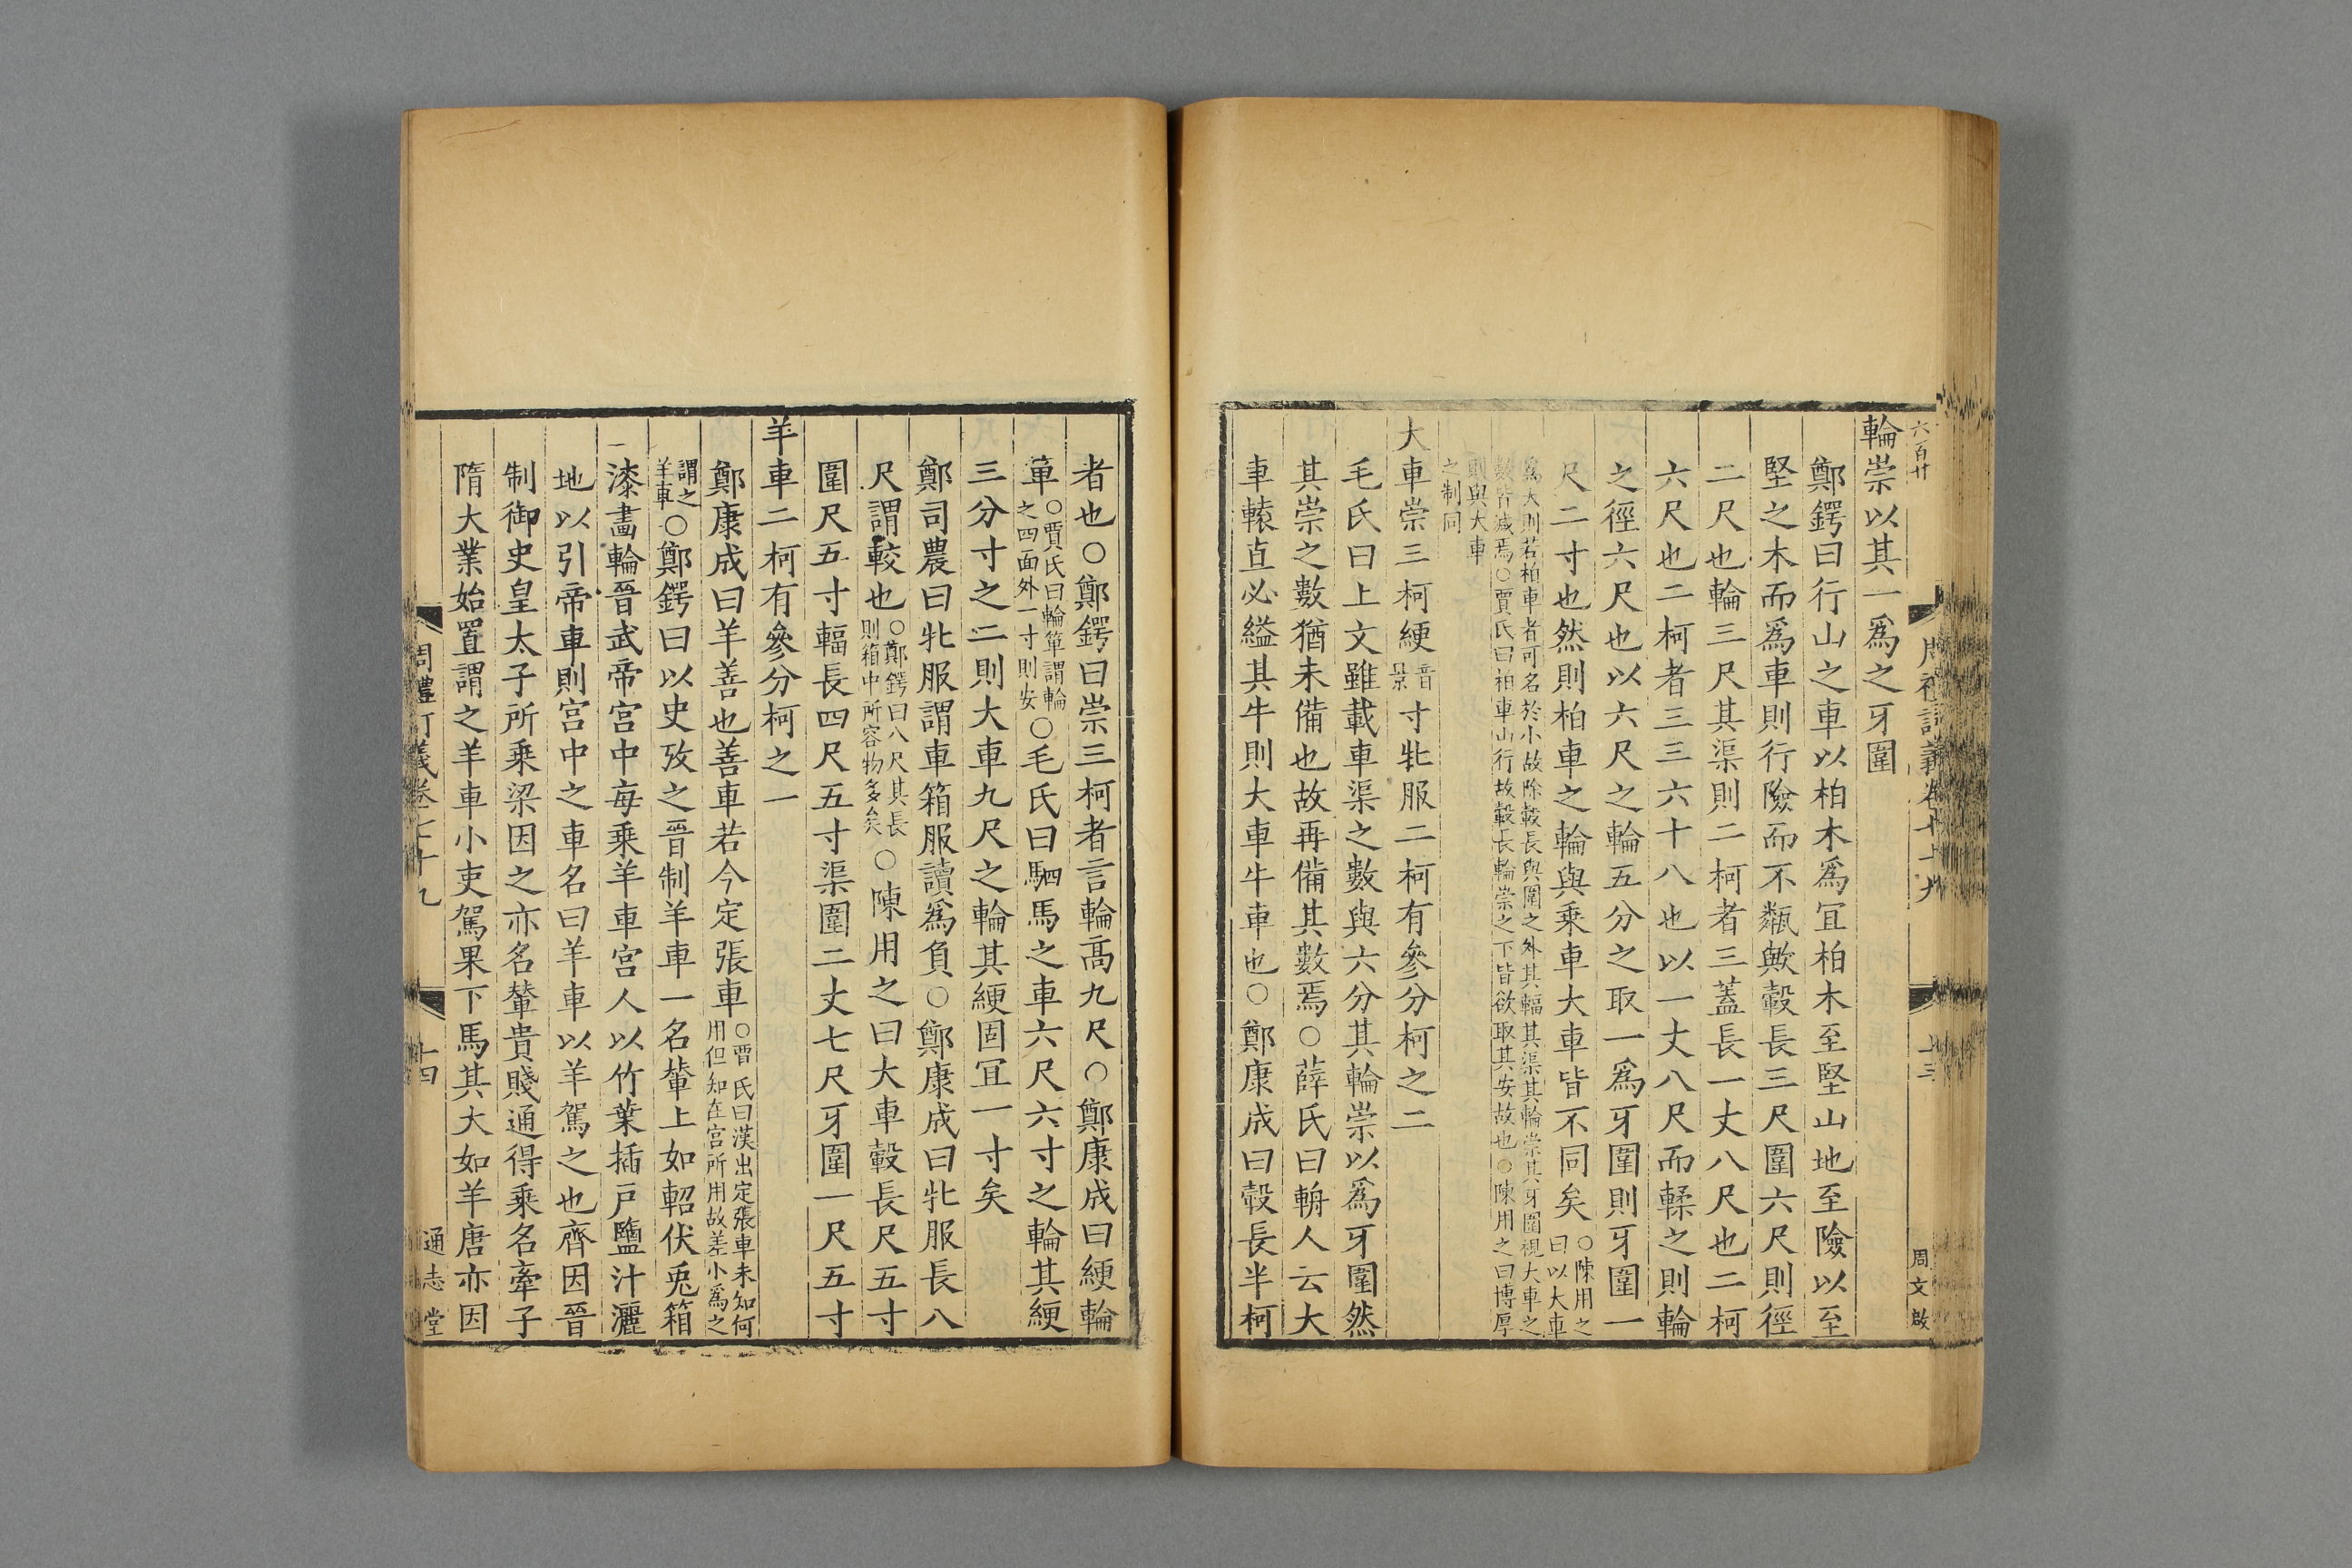 六百廿
輪崇以其一爲之牙圍
鄭鍔曰行山之車以柏木爲宜柏木至堅山地至險以至
堅之木而爲車則行險而不甐歟轂長三尺圍六尺則徑
二尺也輪三尺其渠則二柯者三蓋長一丈八尺也二柯
六尺也二柯者三三六十八也以一丈八尺而輮之則輪
之徑六尺也以六尺之輪五分之取一爲牙圍則牙圍一
尺二寸也然則柏車之輪與乘車大車皆不同矣○陳用之曰以大車
爲大則若柏車者可名於小故除轂長與圍之外其輻其渠其輪崇其牙圍視大車之
數皆減焉○賈氏曰柏車山行故轂長輪崇之下皆欲取其安故也○陳用之曰博厚
則與大車
之制同
大車崇三柯綆音㬌寸牝服二柯有參分柯之二
毛氏曰上文雖載車渠之數與六分其輪崇以爲牙圍然
其崇之數猶未備也故再備其數焉○薛氏曰輈人云大
車轅直必縊其牛則大車牛車也○鄭康成曰轂長半柯
周文啟
者也○鄭鍔曰崇三柯者言輪高九尺○鄭康成曰綆輪
箄○賈氏曰輪箄謂輪之四面外一寸則安○毛氏曰駟馬之車六尺六寸之輪其綆
三分寸之二則大車九尺之輪其綆固宜一寸矣
鄭司農曰牝服謂車箱服讀爲負○鄭康成曰牝服長八
尺謂較也○鄭鍔曰八尺其長則箱中所容物多矣○陳用之曰大車轂長尺五寸
圍尺五寸輻長四尺五寸渠圍二丈七尺牙圍一尺五寸
羊車二柯有參分柯之一
鄭康成曰羊善也善車若今定張車○賈氏曰漢出定張車未知何用但知在宮所用故差小爲之
謂之羊車○鄭鍔曰以史攷之晉制羊車一名輦上如軺伏兎箱
漆畫輪晉武帝宮中每乘羊車宮人以竹葉插戶鹽汁灑
地以引帝車則宮中之車名曰羊車以羊駕之也齊因晉
制御史皇太子所乘梁因之亦名輦貴賤通得乘名牽子
隋大業始置謂之羊車小吏駕果下馬其大如羊唐亦因
十四
通志堂